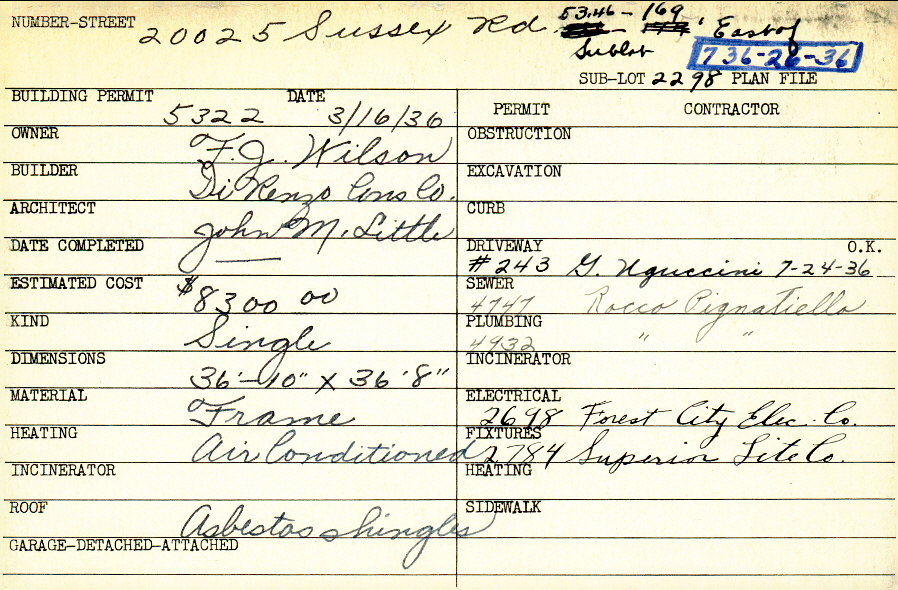 NUMBER-STREET 20025 Sussex Rd. 53.46 - 169' East of
Sublot 736-26-36
SUB-LOT 2298 PLAN FILE
BUILDING PERMIT 5322 DATE 3/16/36
PERMIT CONTRACTOR
OWNER F. J. Wilson
OBSTRUCTION
BUILDER Di Renzo Cons Co.
EXCAVATION
ARCHITECT John M. Little
CURB
DATE COMPLETED —
DRIVEWAY #243 G. Uguccini 7-24-36 O.K.
ESTIMATED COST $8300 00
SEWER 4747 Rocco Pignatiello
KIND Single
PLUMBING 4932 " "
DIMENSIONS 36'-10" X 36'8"
INCINERATOR
MATERIAL Frame
ELECTRICAL 2698 Forest City Elec. Co.
HEATING Air Conditioned
FIXTURES 2784 Superior Lite Co.
INCINERATOR
HEATING
ROOF Asbestos shingles
SIDEWALK
GARAGE-DETACHED-ATTACHED